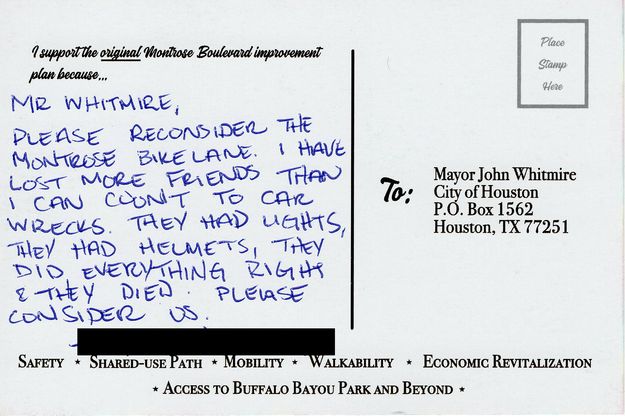 I support the original Montrose Boulevard improvement
plan because...
MR WHITMIRE,
PLEASE RECONSIDER THE
MONTROSE BIKE LANE. I HAVE
LOST MORE FRIENDS THAN
I CAN COUNT TO CAR
WRECKS. THEY HAD LIGHTS,
THEY HAD HELMETS, THEY
DID EVERYTHING RIGHT
& THEY DIED. PLEASE
CONSIDER US.
Place
Stamp
Here
To:
Mayor John Whitmire
City of Houston
P.O. Box 1562
Houston, TX 77251
Safety ⋆ Shared-use Path ⋆ Mobility ⋆ Walkability ⋆ Economic Revitalization
⋆ Access to Buffalo Bayou Park and Beyond ⋆